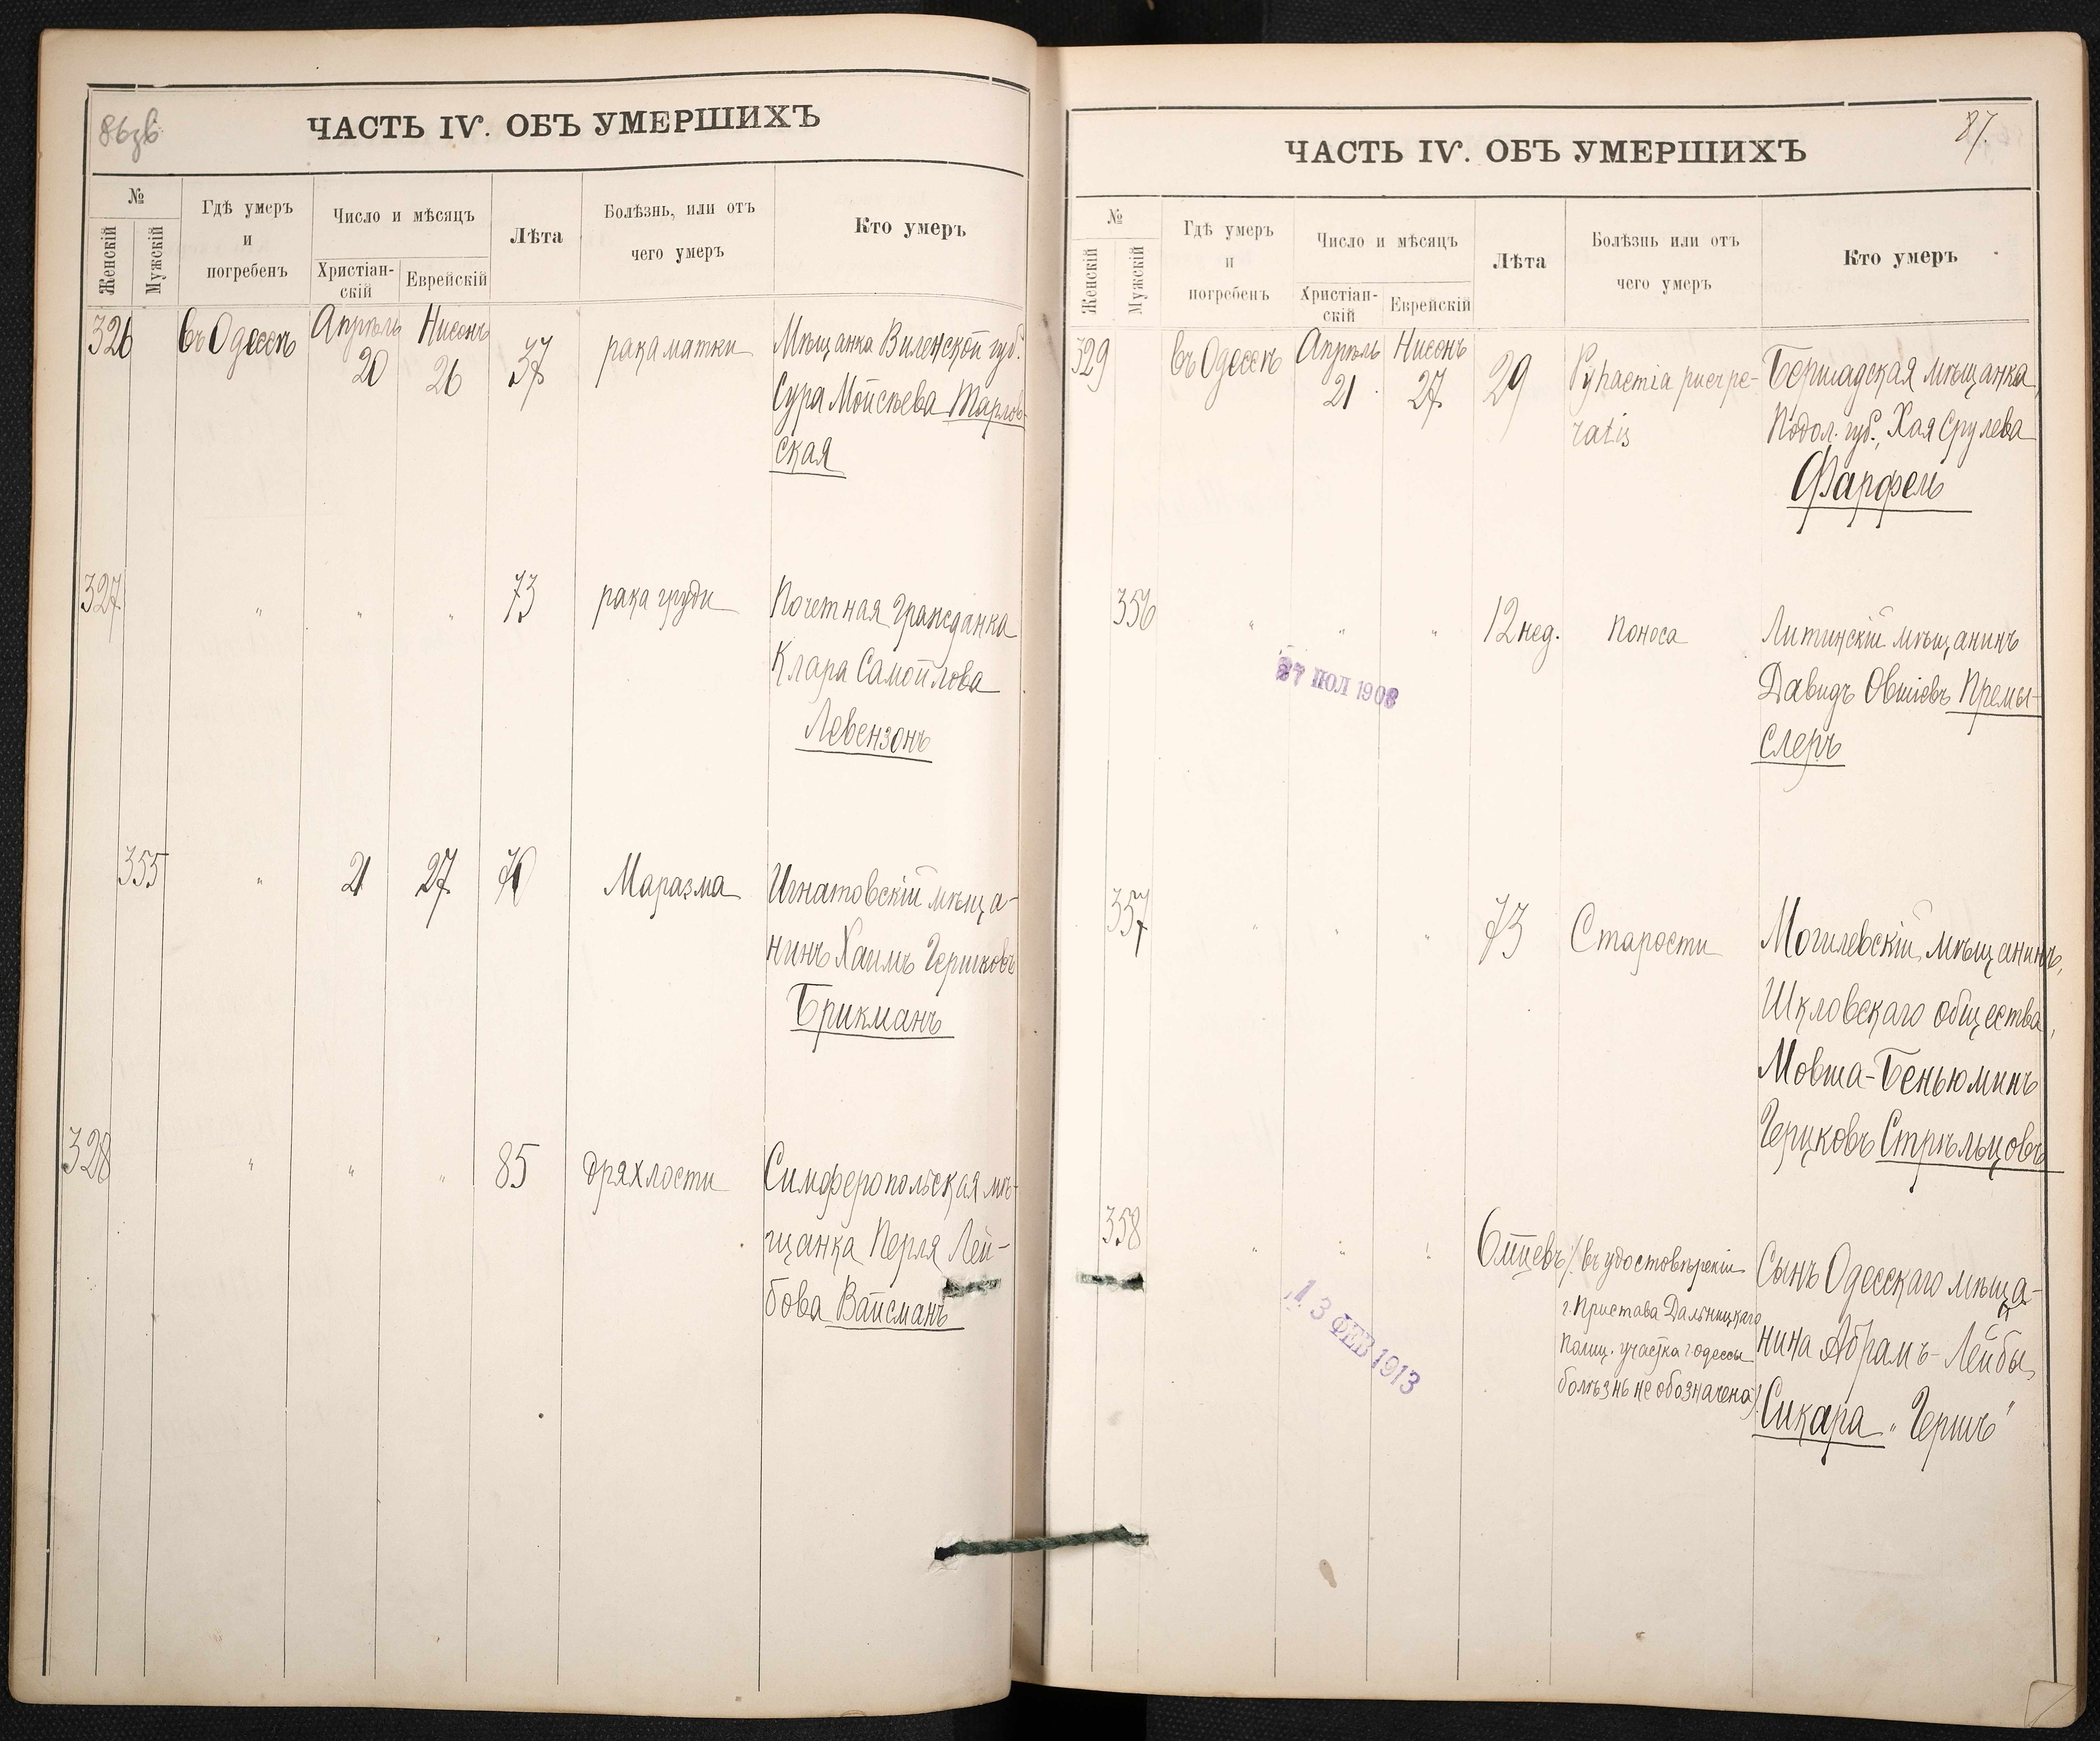 86зв
ЧАСТЬ IV. ОБЪ УМЕРШИХЪ
№
Женскій
Мужскій
Гдѣ умеръ
и
погребенъ
Число и мѣсяцъ
Христіан-
скій
Еврейскій
Лѣта
Болѣзнь, или отъ
чего умеръ
Кто умеръ
326 въ Одессѣ Апрѣль 20 Нисонъ 26 37 рака матки Мѣщанка Виленской губ.
Сура Мойсѣева Тарлов-
ская
327 " " " 73 рака груди Почетная Гражданка
Клара Самойлова
Левензонъ
355 " 21 27 70 Маразма Игнатовскій мѣща-
нинъ Хаимъ Гершковъ
Брикманъ
328 " " " 85 дряхлости Симферопольская мѣ-
щанка Перля Лей-
бова Вайсманъ
87.
ЧАСТЬ IV. ОБЪ УМЕРШИХЪ
№
Женскій
Мужскій
Гдѣ умеръ
и
погребенъ
Число и мѣсяцъ
Христіан-
скій
Еврейскій
Лѣта
Болѣзнь или отъ
чего умеръ
Кто умеръ
329 въ Одессѣ Апрѣль 21 Нисонъ 27 29 Pyhaemia puerpe- Бершадская мѣщанка,
ratis Подол. губ., Хая Срулева
Фарфель
356 " " " 12 нед. Поноса Литинскій мѣщанинъ
27 ІЮЛ 1908
Давидъ Овшіевъ Премы-
слеръ
357 " " " 73 Старости Могилевскій мѣщанинъ,
Шкловскаго общества,
Мовша-Беньюминъ
Герцковъ Стрѣльцовъ
358 " " " 6 мѣсцевъ /въ удостовѣреніи Сынъ Одесскаго мѣща-
г. Пристава Дальницкаго
13 ФЕВ 1913
Полиц. участка г Одессы нина Абрамъ-Лейбы
болѣзнь не обозначена/ Сикара „Гершъ"